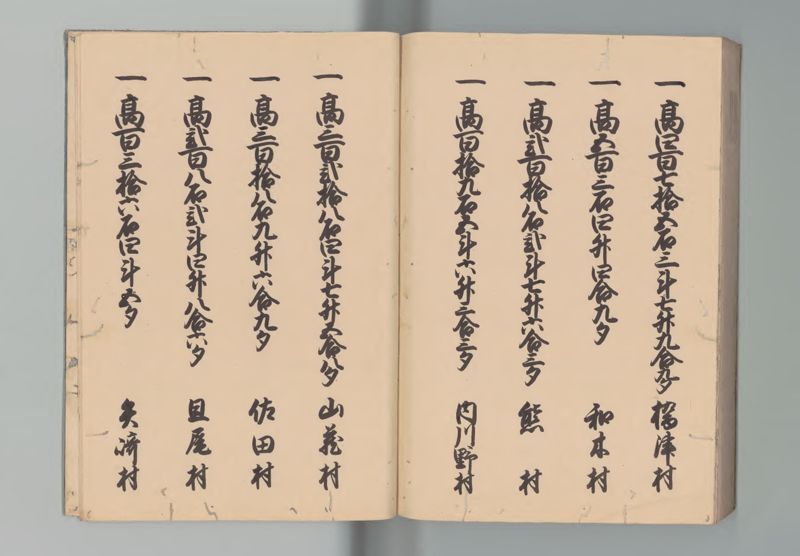 一高四百七拾五石三斗七升九合九夕 樋津村
一高五百三石四升四合九夕 和木村
一高弐百拾八石弐斗七升六合三夕 熊村
一高百拾九石五斗六升三合三夕 内川野村
一高三百弐拾八石四斗七升五合八夕 山蔵村
一高三百拾八石九升六合九夕 佐田村
一高弐百八石弐斗四升八合六夕 且尾村
一高百三拾六石四斗五夕 矢崎村